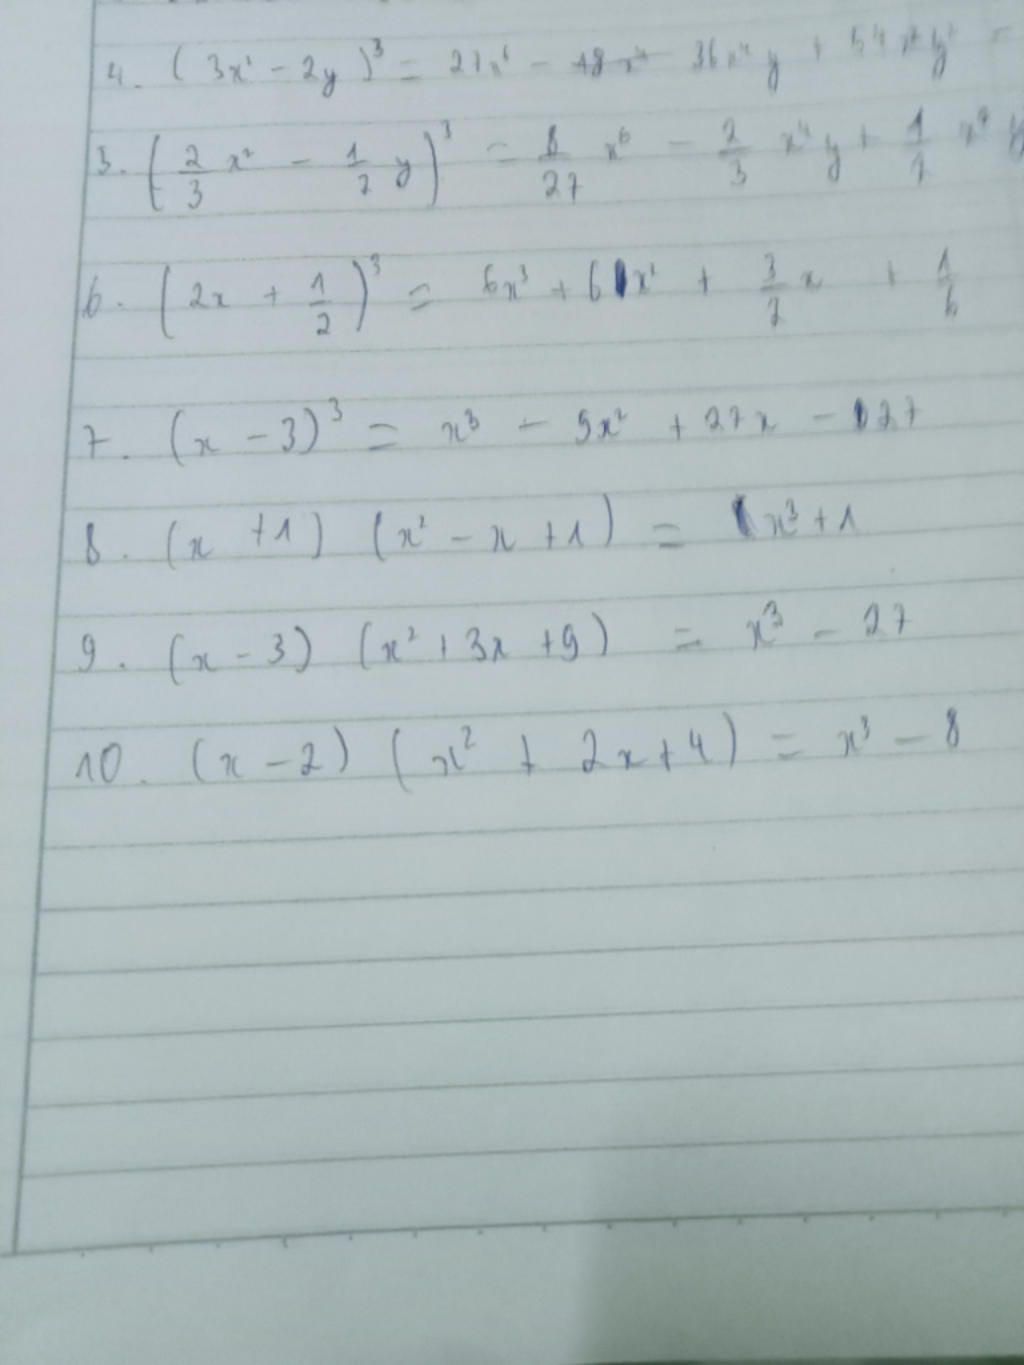 4. (3x² - 2y)³ = 27x⁶ - 36x⁴y + 54x²y² =
5. (2/3 x² - 1/2 y)³ = 8/27 x⁶ - 2/3 x⁴y + 1/2 x² y
6. (2x + 1/2)³ = 6x³ + 6x² + 3/2 x + 1/6
7. (x - 3)³ = x³ - 9x² + 27x - 27
8. (x + 1) (x² - x + 1) = x³ + 1
9. (x - 3) (x² + 3x + 9) = x³ - 27
10. (x - 2) (x² + 2x + 4) = x³ - 8